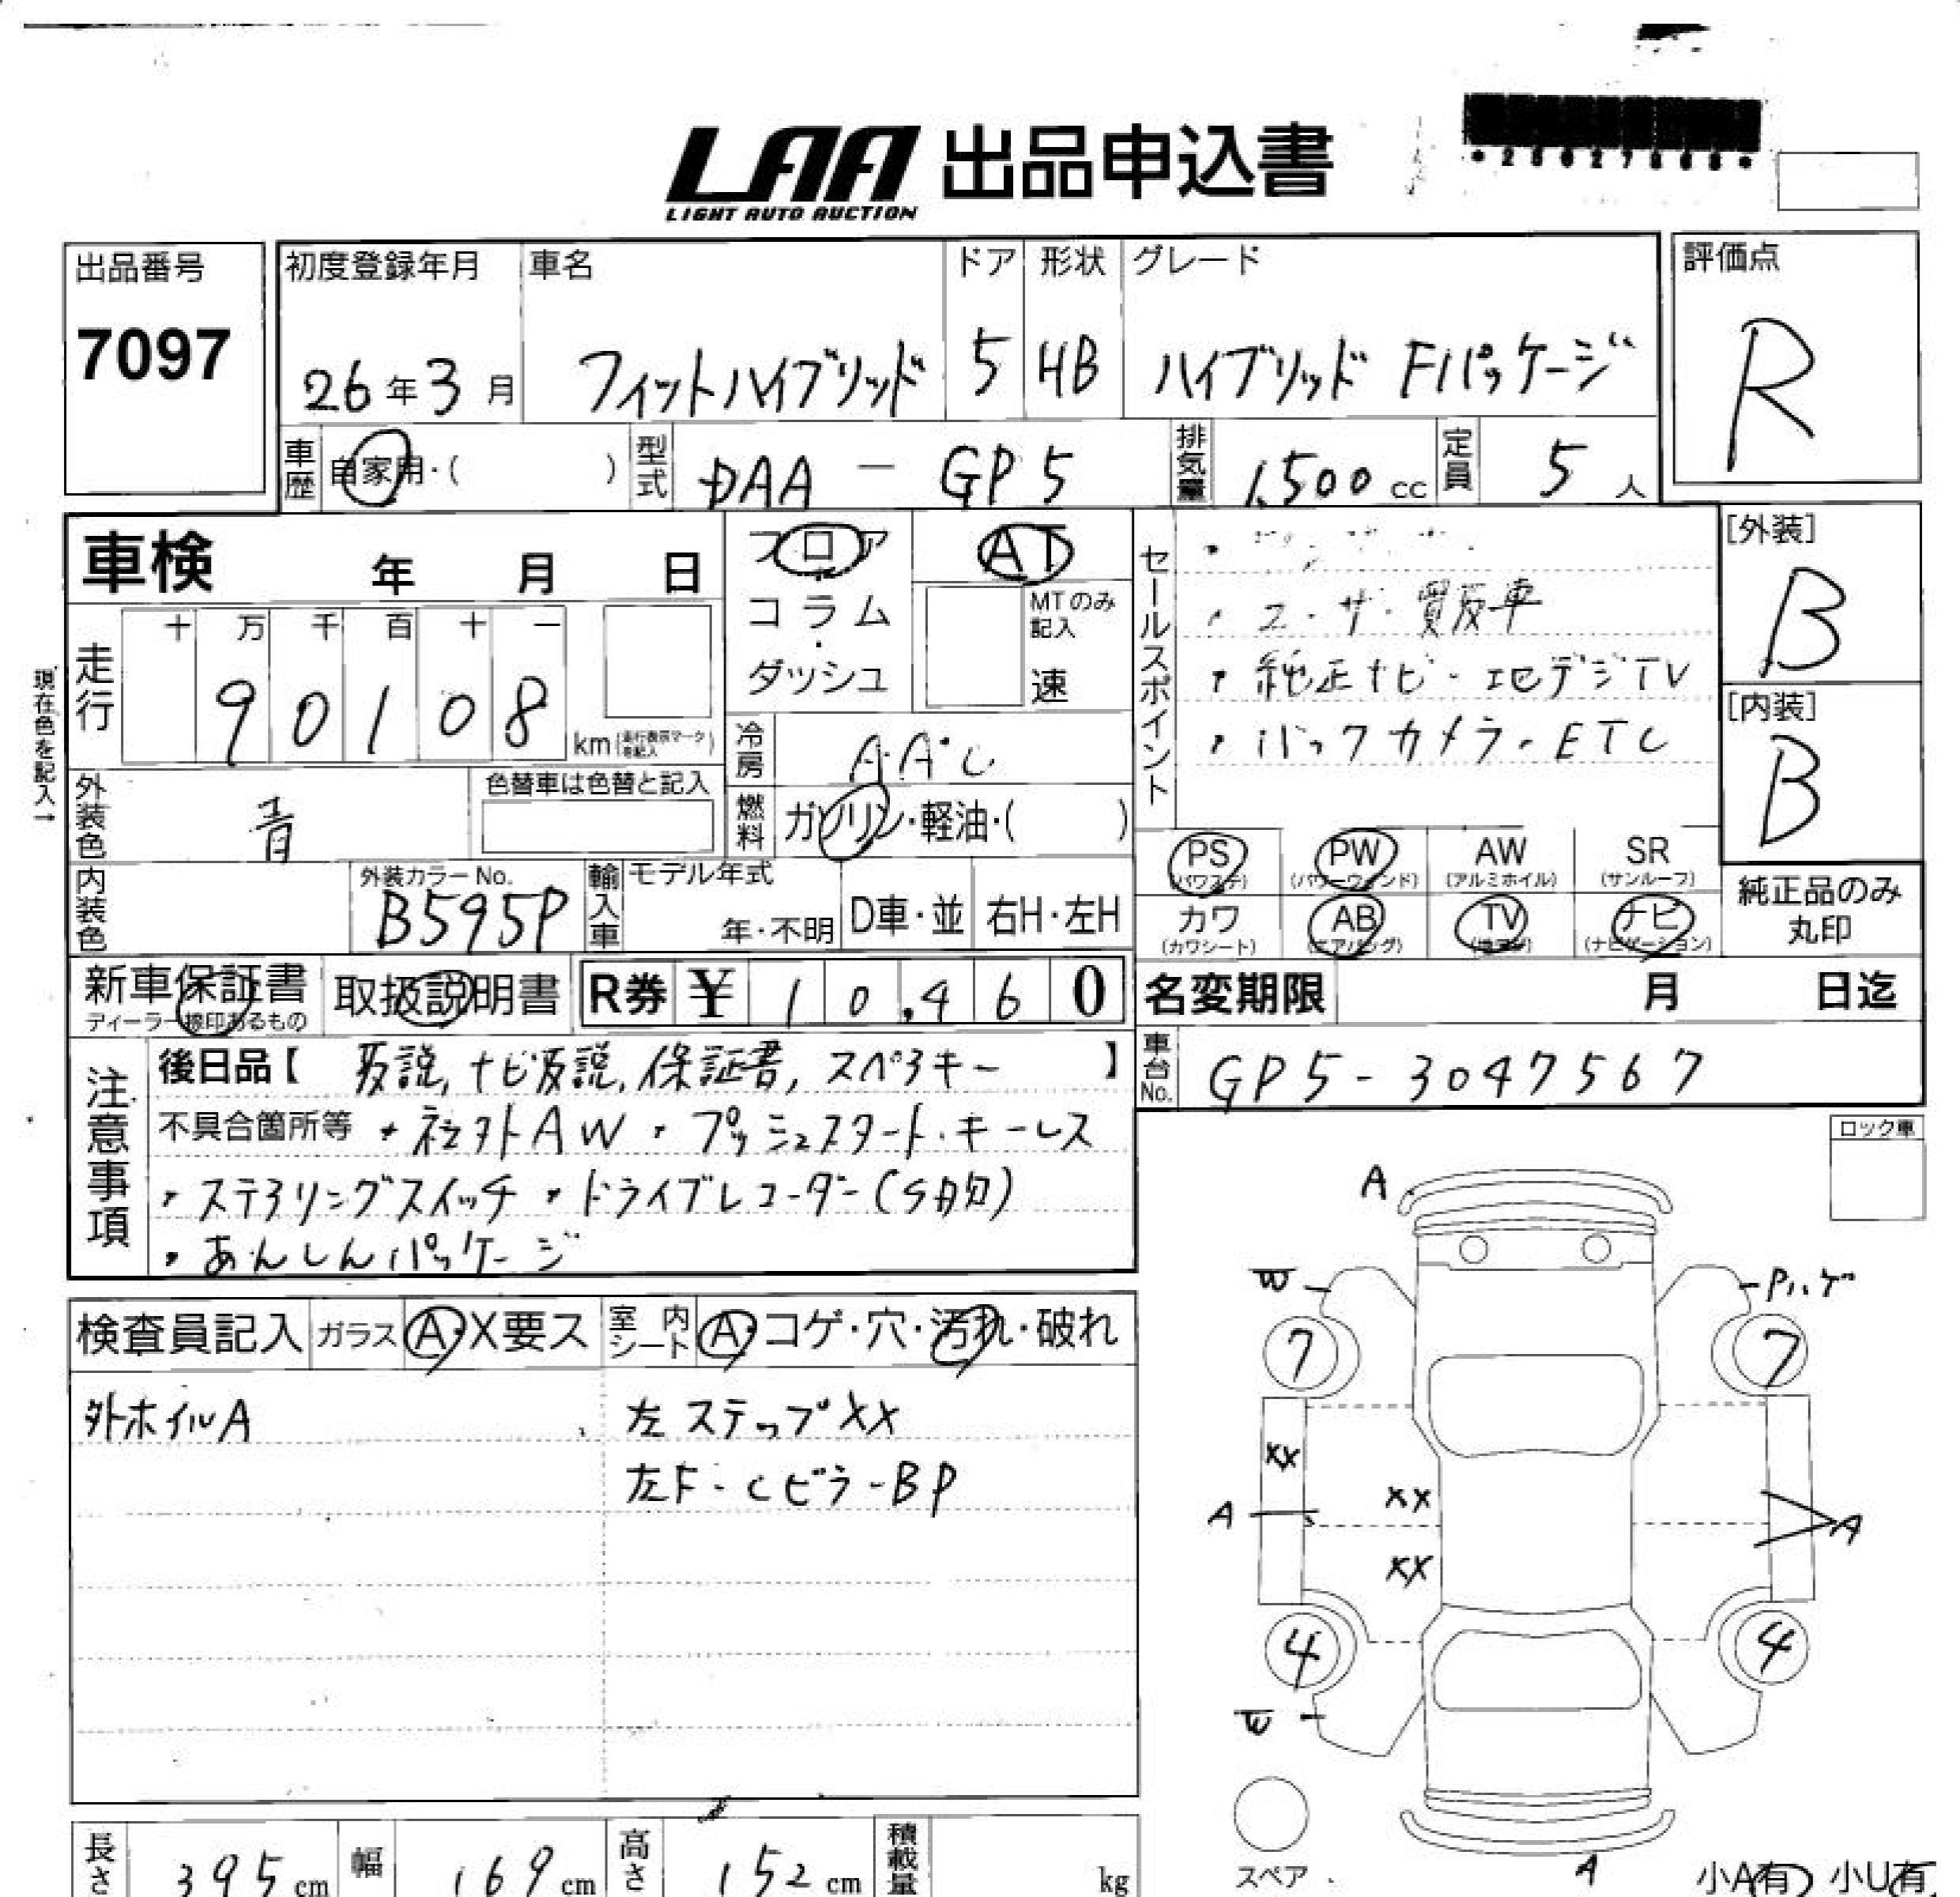 LAA 出品申込書
LIGHT AUTO AUCTION
出品番号
7097
初度登録年月
26年3月
車名
フィットハイブリッド
ドア
5
形状
HB
グレード
ハイブリッド Fパッケージ
評価点
R
車歴
自家用・( )
型式
DAA - GP5
排気量
1,500 cc
定員
5人
車検 年 月 日
フロア
コラム
・
ダッシュ
AT
MTのみ
記入
速
セールスポイント
・ユ-ザ-買反車
・純正ナビ・地デジTV
・バックカメラ・ETC
[外装]
B
[内装]
B
現在色を記入→
走行
十 万 千 百 十 一
90108 km
冷房
AAC
外装色
青
色替車は色替と記入
燃料
ガソリン・軽油・( )
PS
(パワステ)
PW
(パワーウィンド)
AW
(アルミホイル)
SR
(サンルーフ)
カワ
(カワシート)
AB
(エアバッグ)
TV
ナビ
(ナビゲーション)
純正品のみ
丸印
内装色
外装カラーNo.
B595P
輸入車
モデル年式
年・不明
D車・並
右H・左H
新車保証書
ディーラー捺印あるもの
取扱説明書
R券 ¥ 10,460
名変期限 月 日迄
車台No.
GP5-3047567
注意事項
後日品【取説,ナビ取説,保証書,スペアキー】
不具合箇所等 ・社外AW ・プッシュスタート・キーレス
・ステアリングスイッチ ・ドライブレコーダー(S自分)
・あんしんパッケージ
ロック車
検査員記入
ガラス
A・X要ス
室内シート
A・コゲ・穴・汚れ・破れ
外ホイルA
左ステップXX
左F-CピラーBP
A
W
Pハゲ
7
7
XX
A
XX
XX
A
4
4
W
スペア
A
小A有 小U有
長さ
395 cm
幅
169 cm
高さ
152 cm
積載量
kg